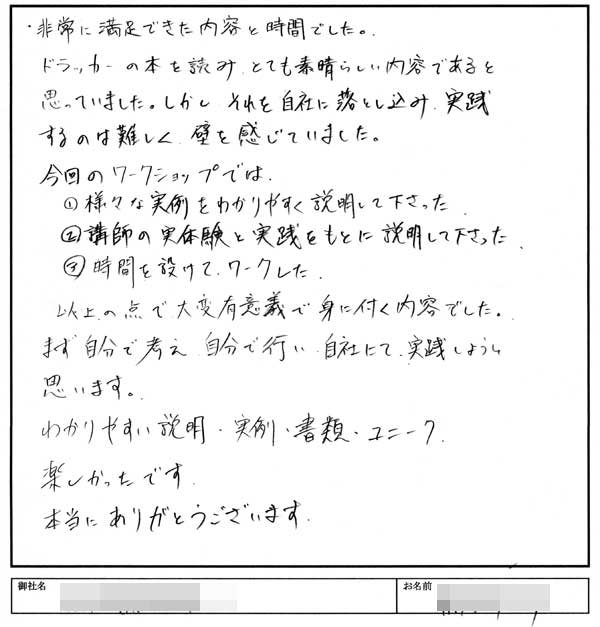 ・非常に満足できた内容と時間でした。
ドラッカーの本を読み、とても素晴らしい内容であると
思っていました。しかし、それを自社に落とし込み、実践
するのは難しく、壁を感じていました。
今回のワークショップでは、
①様々な実例をわかりやすく説明して下さった、
②講師の実体験と実践をもとに説明して下さった、
③時間を設けて、ワークした、
以上の点で大変有意義で身に付く内容でした。
まず自分で考え、自分で行い、自社にて、実践しようと
思います。
わかりやすい説明・実例・書類・ユニーク、
楽しかったです、
本当にありがとうございます。
御社名
お名前